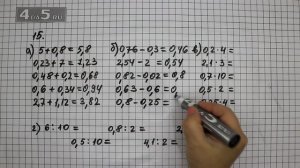 4.0.5.RU
15.
а) 5+0,8=5,8 б) 0,76-0,3=0,46 в) 0,2·4=
0,23+7=7,23 2,54-2=0,54 2,1·3=
0,48+0,2=0,68 0,82-0,02=0,8 0,7·10=
0,6+0,34=0,94 0,63-0,6=0, 0,5·2=
2,7+1,12=3,82 0,8-0,25= 0,25·4=
г) 6:10= 0,8:2= 2
0,5:10= 4,1:2=